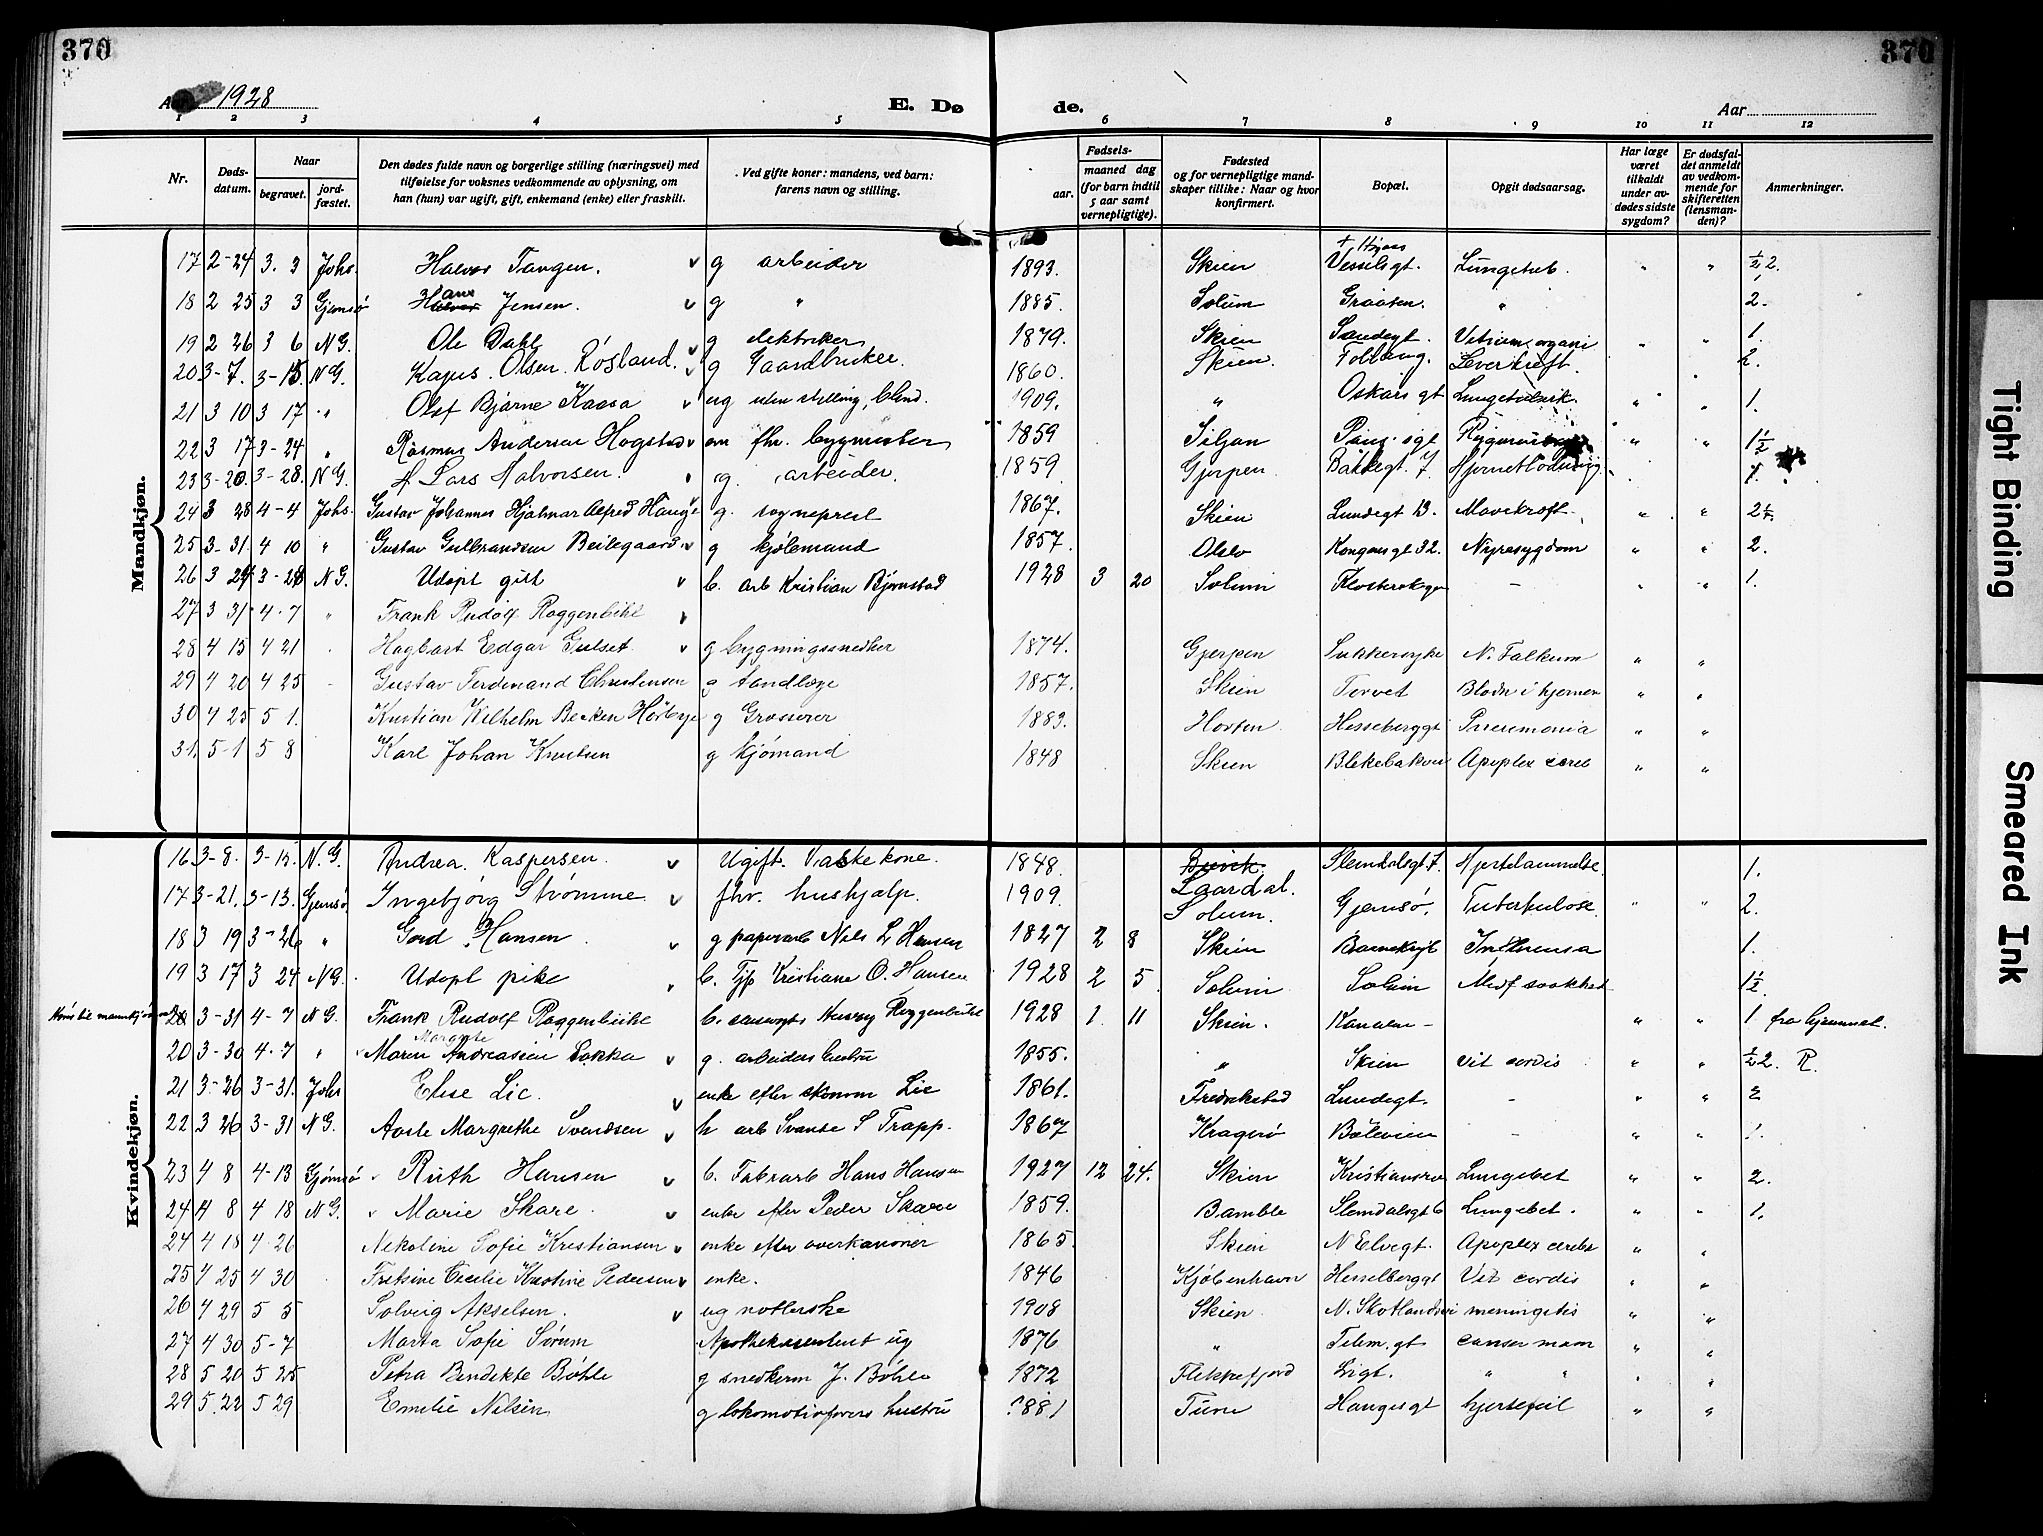 370
370
Aar 1928
E. Dø de.
Aar
1 2 3 4 5 6 7 8 9 10 11 12
Nr.
Døds-
datum.
Naar
begravet.
jord-
fæstet.
Den dødes fulde navn og borgerlige stilling (næringsvei) med
tilføielse for voksnes vedkommende av oplysning, om
han (hun) var ugift, gift, enkemand (enke) eller fraskilt.
Ved gifte koner: mandens, ved barn:
farens navn og stilling.
Fødsels-
aar.
maaned dag
(for barn indtil
5 aar samt
vernepligtige).
Fødested
og for vernepligtige mand-
skaper tillike: Naar og hvor
konfirmert.
Bopæl.
Opgit dødsaarsag.
Har læge
været
tilkaldt
under av-
dødes sidste
sygdom?
Er dødsfal-
det anmeldt
av vedkom-
mende for
skifteretten
(lensman-
den)?
Anmerkninger.
Mandkjøn.
17 2-24 3. 3 Johs. Halvor Tangen. g arbeider 1893. Skien Vesselsgt. Lungetub. " " ½ 2.
18 2 25 3 3 Gjemsø Hans Jensen. g " 1885. Solum Graaten. " 2.
19 2 26 3 6 N G. Ole Dahl g elektriker 1879. Skien Sundegt. Vitium organi " " 1.
20 3-7. 3-15 N G. Olsen Røsland. g Gaardbruker. 1860. Skien. Leverkreft. 2.
21 3 10 3 17 " Olaf Bjarne Kaasa ug uten stilling, blind. 1909. " Oskars gt " " 1.
22 3 17 3-24 " Rasmus Andersen Hogstad em fhv. bygmester 1859 Siljan " " 1½
23 3-20. 3-28. N G. Lars Halvorsen. g. arbeider. 1859. Gjerpen. Bakkegt. 7 Hjerneblødning 1.
24 3 28 4-4 Johs. Gustav Johannes Hjalmar Alfred Hauge g. sogneprest 1867. Skien Lundegt 13. Mavekræft " "
25 3-31. 4 10 " Gustav Gulbrandsen g kjølemand 1857. Oslo Kongensgt 32. Nyresygdom " " 2.
26 3 24 3-28 N G. Udøpt gut b. arb Kristian Bjørnstad 1928 3 20 Solum - " " 1.
27 3 31 4-7 " Frank Rudolf Roggenbihl
28 4 15 4 21 Hagbart Edgar Gulset g bygningssnedker 1874. Gjerpen N. Falkum " "
29 4 20 4 25 - Gustav Ferdinand Christensen g tandlæge 1857. Skien Torvet Blodn i hjernen " "
30 4 25 5 1. Kristian Wilhelm Becken Hørbye g Grosserer 1883. Horten Hesselberggt Pneumonia " "
31. 5-1 5 8 Karl Johan Knutsen g kjømand 1848 Skien Blekebakvei Apoplex cereb " "
Kvindekjøn.
16. 3-8. 3-15. N. G. Andrea Kaspersen. Ugift. Vaskekone. 1848. Slemdalsgt 7. Hjertelammelse. 1.
17 3-21. 3-13. Gjemsø Ingebjørg Strømme fhv. hushjælp. 1909. Laardal. Solum. Gjemsø. Tuberkulose " " 2.
18 3 19 3-26 " Gerd Hansen g paperarb Nils L Hansen 1827 2 8 Skien Influensa 1.
19 3 17 3 24 N G. Udøpt pike b. Tjp Kristiane O. Hansen 1928 2 5. Solum Solum Medf svakhet 1½.
3-31 4-7 N G. Frank Rudolf Roggenbihle 1928 1. 11 Skien. Kanalen - " " 1. fra hjemmet.
20 3-30 4-7 " Maren Andreasine Bakka g. arbeiders hustru 1855. " Skien Vit cordis " " ½ 2. R.
21 3-26 3-31. Johs Else Lie. enke efter skomm Lie 1861. Fredrikstad Lundegt. - " " 2
22 3 26 3-31 N G. Aasle Margrethe Svendsen h arb Svanse S Trapp. 1867 Kragerø Bølevien - " " 1.
23 4 8 4-13 Gjemsø Ruth Hansen b. Fabrarb Hans Hansen 1927 12 24. Skien Lungebet " " 2.
24 4 8 4 18 N G. Marie Skare. enke efter Peder Skare 1859. Bamble Slemdalsgt 6 Lungebet. " " 1.
24 4 18 4-26 Nikoline Sofie Kristiansen enke efter overkanoner 1865. Skien N Elvegt. Apoplex cerebr " "
25 4 25 4 30 Cecilie Kristine Pedersen enke. 1846 Kjøbenhavn Hesselberggt Vit cordis " "
26 4 29 5 5 Solveig Akselsen. ug 1908 Skien N. Skotlandsvei meningitis " "
27 4 30 5-7 Marta Sofie Sørum ug 1876 " Telem.gt cancer mam " "
28 5 20 5 25 Petra Bendikte Bøhle g snedkerm J. Bøhle 1872 Flekkefjord Ligt. " " " "
29 5.22 5 29 Emilie Nilsen g lokomotivførers hustru 1881 Ture Haugesgt hjertefeil " "
Tight Binding
Smeared Ink